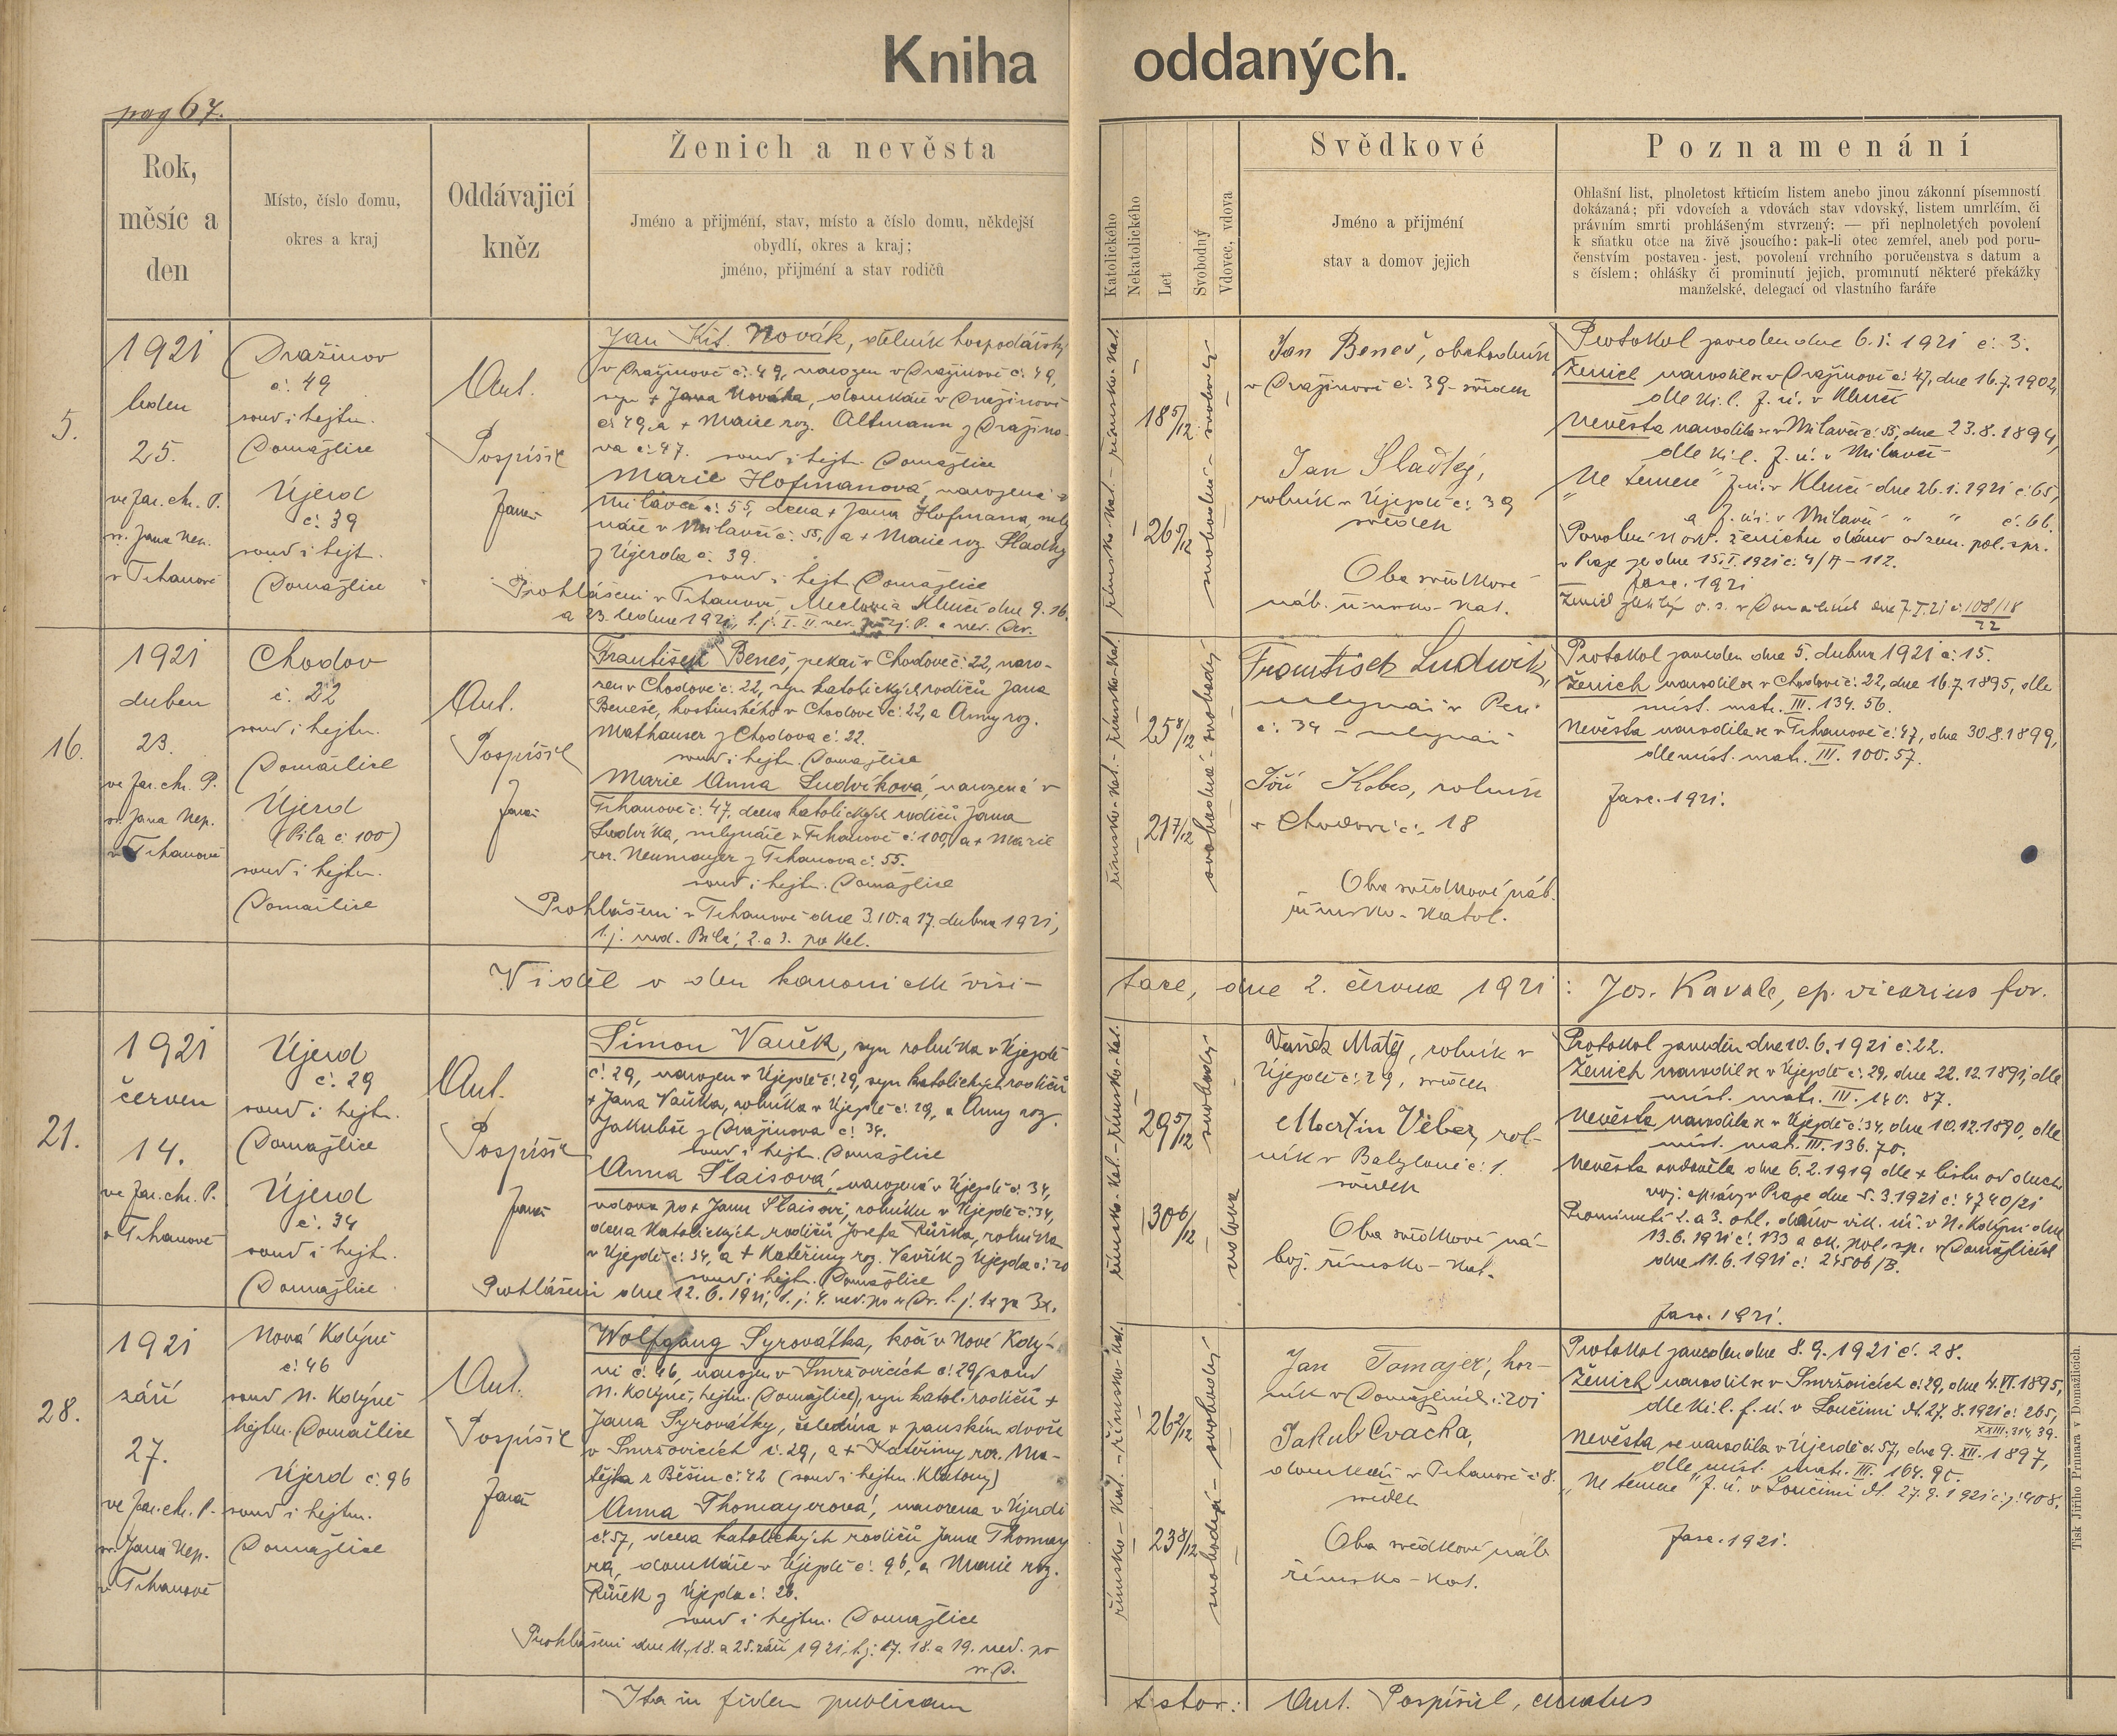 Kniha oddaných.
pag 67.
Rok,
měsíc a
den
Místo, číslo domu,
okres a kraj
Oddávajicí
kněz
Ženich a nevěsta
Jméno a přijméní, stav, místo a číslo domu, někdejší
obydlí, okres a kraj;
jméno, přijmení a stav rodičů
Katolického
Nekatolického
Let
Svobodný
Vdovec, vdova
Svědkové
Jméno a přijmení
stav a domov jejich
Poznamenání
Ohlašní list, plnoletost křticím listem anebo jinou zákonní písemností
dokázaná; při vdovcích a vdovách stav vdovský, listem umrlčím, či
právním smrti prohlášeným stvrzený; — při neplnoletých povolení
k sňatku otce na živě jsoucího: pak-li otec zemřel, aneb pod poru-
čenstvím postaven jest, povolení vrchního poručenstva s datum a
s číslem; ohlášky či prominutí jejich, prominutí některé překážky
manželské, delegací od vlastního faráře
5.
1921
leden
25.
ve far. ch. P.
sv. Jana Nep.
v Trhanově
Dražinov
č. 49
soud i hejtm.
Domažlice
Újezd
č. 39
soud i hejt.
Domažlice
Ant.
Pospíšil
farář
Jan Kř. Novák, dělník hospodářský
v Dražinově č. 49, narozen v Dražinově č. 49,
syn + Jana Nováka, domkáře v Dražinově
č. 49, a + Marie roz. Altmann z Dražino-
va č. 47. soud i hejt. Domažlice
Marie Hofmanová, narozená v
Milavči č. 55, dcera + Jana Hofmana, mly
náře v Milavči č. 55, a + Marie roz. Sladký
z Újezda č. 39.
soud i hejt. Domažlice
Prohlášeni v Trhanově, Meclově a Klenčí dne 9. 16.
a 23. ledna 1921, t. j. I. II. ned. po zj. P. a ned. Dev.
římsko-kat. – římsko-kat.
18 5/12
26 5/12
svobodná – svobodný
Jan Beneš, obchodník
v Dražinově č. 39 - svědek
Jan Sladký,
rolník v Újezdě č. 39
svědek
Oba svědkové
náb. římsko-kat.
Protokol zaveden dne 6. 1. 1921 č. 3.
Ženich narodil se v Dražinově č. 47, dne 16. 7. 1902,
dle kř. l. f. ú. v Klenčí
Nevěsta narodila se v Milavči č. 55, dne 23. 8. 1894,
dle kř. l. f. ú. v Milavči
"Ne temere" f. ú. v Klenčí dne 26. 1. 1921 č. 65,
a f. ú. v Milavči " " č. 66.
Povolení k odd. ženichu dáno od zem. pol. spr.
v Praze ze dne 15. I. 1921 č. 4/A - 112.
fasc. 1921
16.
1921
duben
23.
ve far. ch. P.
sv. Jana Nep.
v Trhanově
Chodov
č. 22
soud i hejtm.
Domažlice
Újezd
(Pila č. 100)
soud i hejtm.
Domažlice
Ant.
Pospíšil
farář
František Beneš, pekař v Chodově č. 22, naro-
zen v Chodově č. 22, syn katolických rodičů Jana
Beneše, hostinského v Chodově č. 22, a Anny roz.
Mathauser z Chodova č. 22.
soud i hejtm. Domažlice
Marie Anna Ludvíková, narozená v
Trhanově č. 47, dcera katolických rodičů Jana
Ludvíka, mlynáře v Trhanově č. 100, a + Marie
roz. Neumayer z Trhanova č. 55.
soud i hejtm. Domažlice
Prohlášeni v Trhanově dne 3. 10. a 17. dubna 1921,
t. j. ned. Bílá, 2. a 3. po Vel.
římsko-kat. – římsko-kat.
25 8/12
21 7/12
svobodná – svobodný
František Ludwík,
mlynář v Peci
č. 34 – mlynář
Jiří Kobes, rolník
v Chodově č. 18
Oba svědkové náb.
římsko-katol.
Protokol zaveden dne 5. dubna 1921 č. 15.
Ženich narodil se v Chodově č. 22, dne 16. 7. 1895, dle
míst. matr. III. 134. 56.
Nevěsta narodila se v Trhanově č. 47, dne 30. 8. 1899,
dle míst. matr. III. 100. 57.
fasc. 1921.
Viděl v den kanonické visi-
tace, dne 2. června 1921: Jos. Kavale, ep. vicarius for.
21.
1921
červen
14.
ve far. ch. P.
v Trhanově
Újezd
č. 29
soud i hejt.
Domažlice
Újezd
č. 34
soud i hejt.
Domažlice
Ant.
Pospíšil
farář
Šimon Vaněk, syn rolníka v Újezdě
č. 29, narozen v Újezdě č. 29, syn katolických rodičů
+ Jana Vaňka, rolníka v Újezdě č. 29, a Anny roz.
Jakubše z Dražinova č. 34.
soud i hejtm. Domažlice
Anna Šlaisová, narozená v Újezdě č. 34,
vdova po + Janu Šlaisovi, rolníku v Újezdě č. 34,
dcera katolických rodičů Josefa Růžka, rolníka
v Újezdě č. 34, a + Kateřiny roz. Vavřík z Újezda č. 20
soud i hejt. Domažlice
Prohlášeni dne 12. 6. 1921, t. j. 4. ned. po sv. Dr. t. j. 1x za 3x.
římsko-kat. – římsko-kat.
29 5/12
30 6/12
svobodný
vdova
Vaněk Matěj, rolník v
Újezdě č. 29, svědek
Martin Veber, rol-
ník v Babyloně č. 1.
svědek
Oba svědkové ná-
boj. římsko-kat.
Protokol zaveden dne 10. 6. 1921 č. 22.
Ženich narodil se v Újezdě č. 29, dne 22. 12. 1891, dle
míst. matr. III. 140. 87.
Nevěsta narodila se v Újezdě č. 34, dne 10. 12. 1890, dle
míst. mat. III. 136. 70.
Nevěsta ovdověla dne 6. 2. 1919 dle + listu od duch.
voj. správy v Praze dne 5. 3. 1921 č. 4740/21
Prominutí 2. a 3. ohl. dáno vik. úř. v N. Kdyni dne
13. 6. 1921 č. 133 a ok. pol. sp. v Domažlicích
dne 11. 6. 1921 č. 24506/B.
fasc. 1921.
28.
1921
září
27.
ve far. ch. P.
sv. Jana Nep.
v Trhanově
Nová Kdýně
č. 46
soud N. Kdýně
hejtm. Domažlice
Újezd č. 96
soud i hejtm.
Domažlice
Ant.
Pospíšil
farář
Wolfgang Syrovátka, kočí v Nové Kdý-
ni č. 46, narozen v Smržovicích č. 29 (soud
N. Kdyně, hejtm. Domažlice), syn katol. rodičů +
Jana Syrovátky, čeledína v panském dvoře
v Smržovicích č. 29, a + Kateřiny roz. Ma-
tějka z Běšin č. 42 (soud i hejtm. Klatovy)
Anna Thomayerová, narozena v Újezdě
č. 57, dcera katolických rodičů Jana Thomay
ra, domkáře v Újezdě č. 96, a Marie roz.
Růžek z Újezda č. 26.
soud i hejtm. Domažlice
Prohlášeni dne 11., 18. a 25. září 1921, t. j. 17. 18. a 19. ned. po
sv. D.
římsko-kat. – římsko-kat.
26 2/12
23 8/12
svobodná – svobodný
Jan Tomajer, hor-
ník v Domažlicích č. 201
Jakub Cvačka,
domkář v Trhanově č. 8.
svědek
Oba svědkové náb.
římsko-kat.
Protokol zaveden dne 8. 9. 1921 č. 28.
Ženich narodil se v Smržovicích č. 29, dne 4. VI. 1895,
dle kř. l. f. ú. v Loučimi dt. 27. 8. 1921 č. 265,
XXIII. 314. 39.
Nevěsta se narodila v Újezdě č. 57, dne 9. XII. 1897,
dle míst. matr. III. 164. 95.
"Ne temere" f. ú. v Loučimi dt. 27. 9. 1921 č. j. 408.
fasc. 1921.
Ita in fidem publicam
testor: Ant. Pospíšil, curatus
Tisk Jiřího Prunara v Domažlicích.